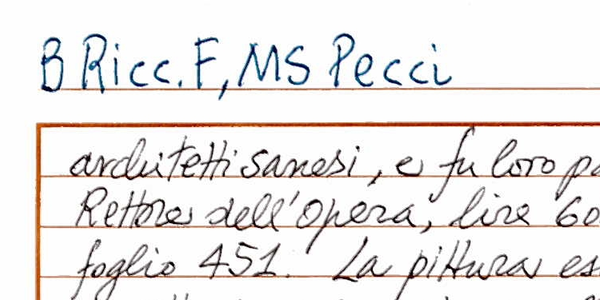 B Ricc. F, MS Pecci
architetti sanesi, e fu loro pa
Rettore dell'opera, lire 60
foglio 451. La pittura es